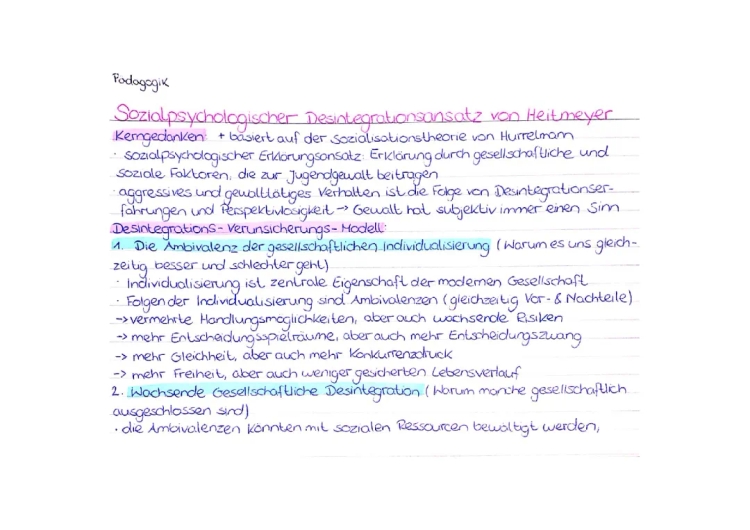 Pädagogik
Sozialpsychologischer Desintegrationsansatz von Heitmeyer
Kerngedanken: + basiert auf der Sozialisationstheorie von Hurrelmann
· sozialpsychologischer Erklärungsansatz: Erklärung durch gesellschaftliche und
soziale Faktoren, die zur Jugendgewalt beitragen
· aggressives und gewalttätiges Verhalten ist die Folge von Desintegrationser-
fahrungen und Perspektivlosigkeit -> Gewalt hat subjektiv immer einen Sinn
Desintegrations-Verunsicherungs-Modell:
1. Die Ambivalenz der gesellschaftlichen Individualisierung (Warum es uns gleich-
zeitig besser und schlechter geht)
· Individualisierung ist zentrale Eigenschaft der modernen Gesellschaft
· Folgen der Individualisierung sind Ambivalenzen (gleichzeitig Vor- & Nachteile)
-> vermehrte Handlungsmöglichkeiten, aber auch wachsende Risiken
-> mehr Entscheidungsspielräume, aber auch mehr Entscheidungszwang
-> mehr Gleichheit, aber auch mehr Konkurrenzdruck
-> mehr Freiheit, aber auch weniger gesicherten Lebensverlauf
2. Wachsende Gesellschaftliche Desintegration (Warum manche gesellschaftlich
ausgeschlossen sind)
· die Ambivalenzen könnten mit sozialen Ressourcen bewältigt werden,